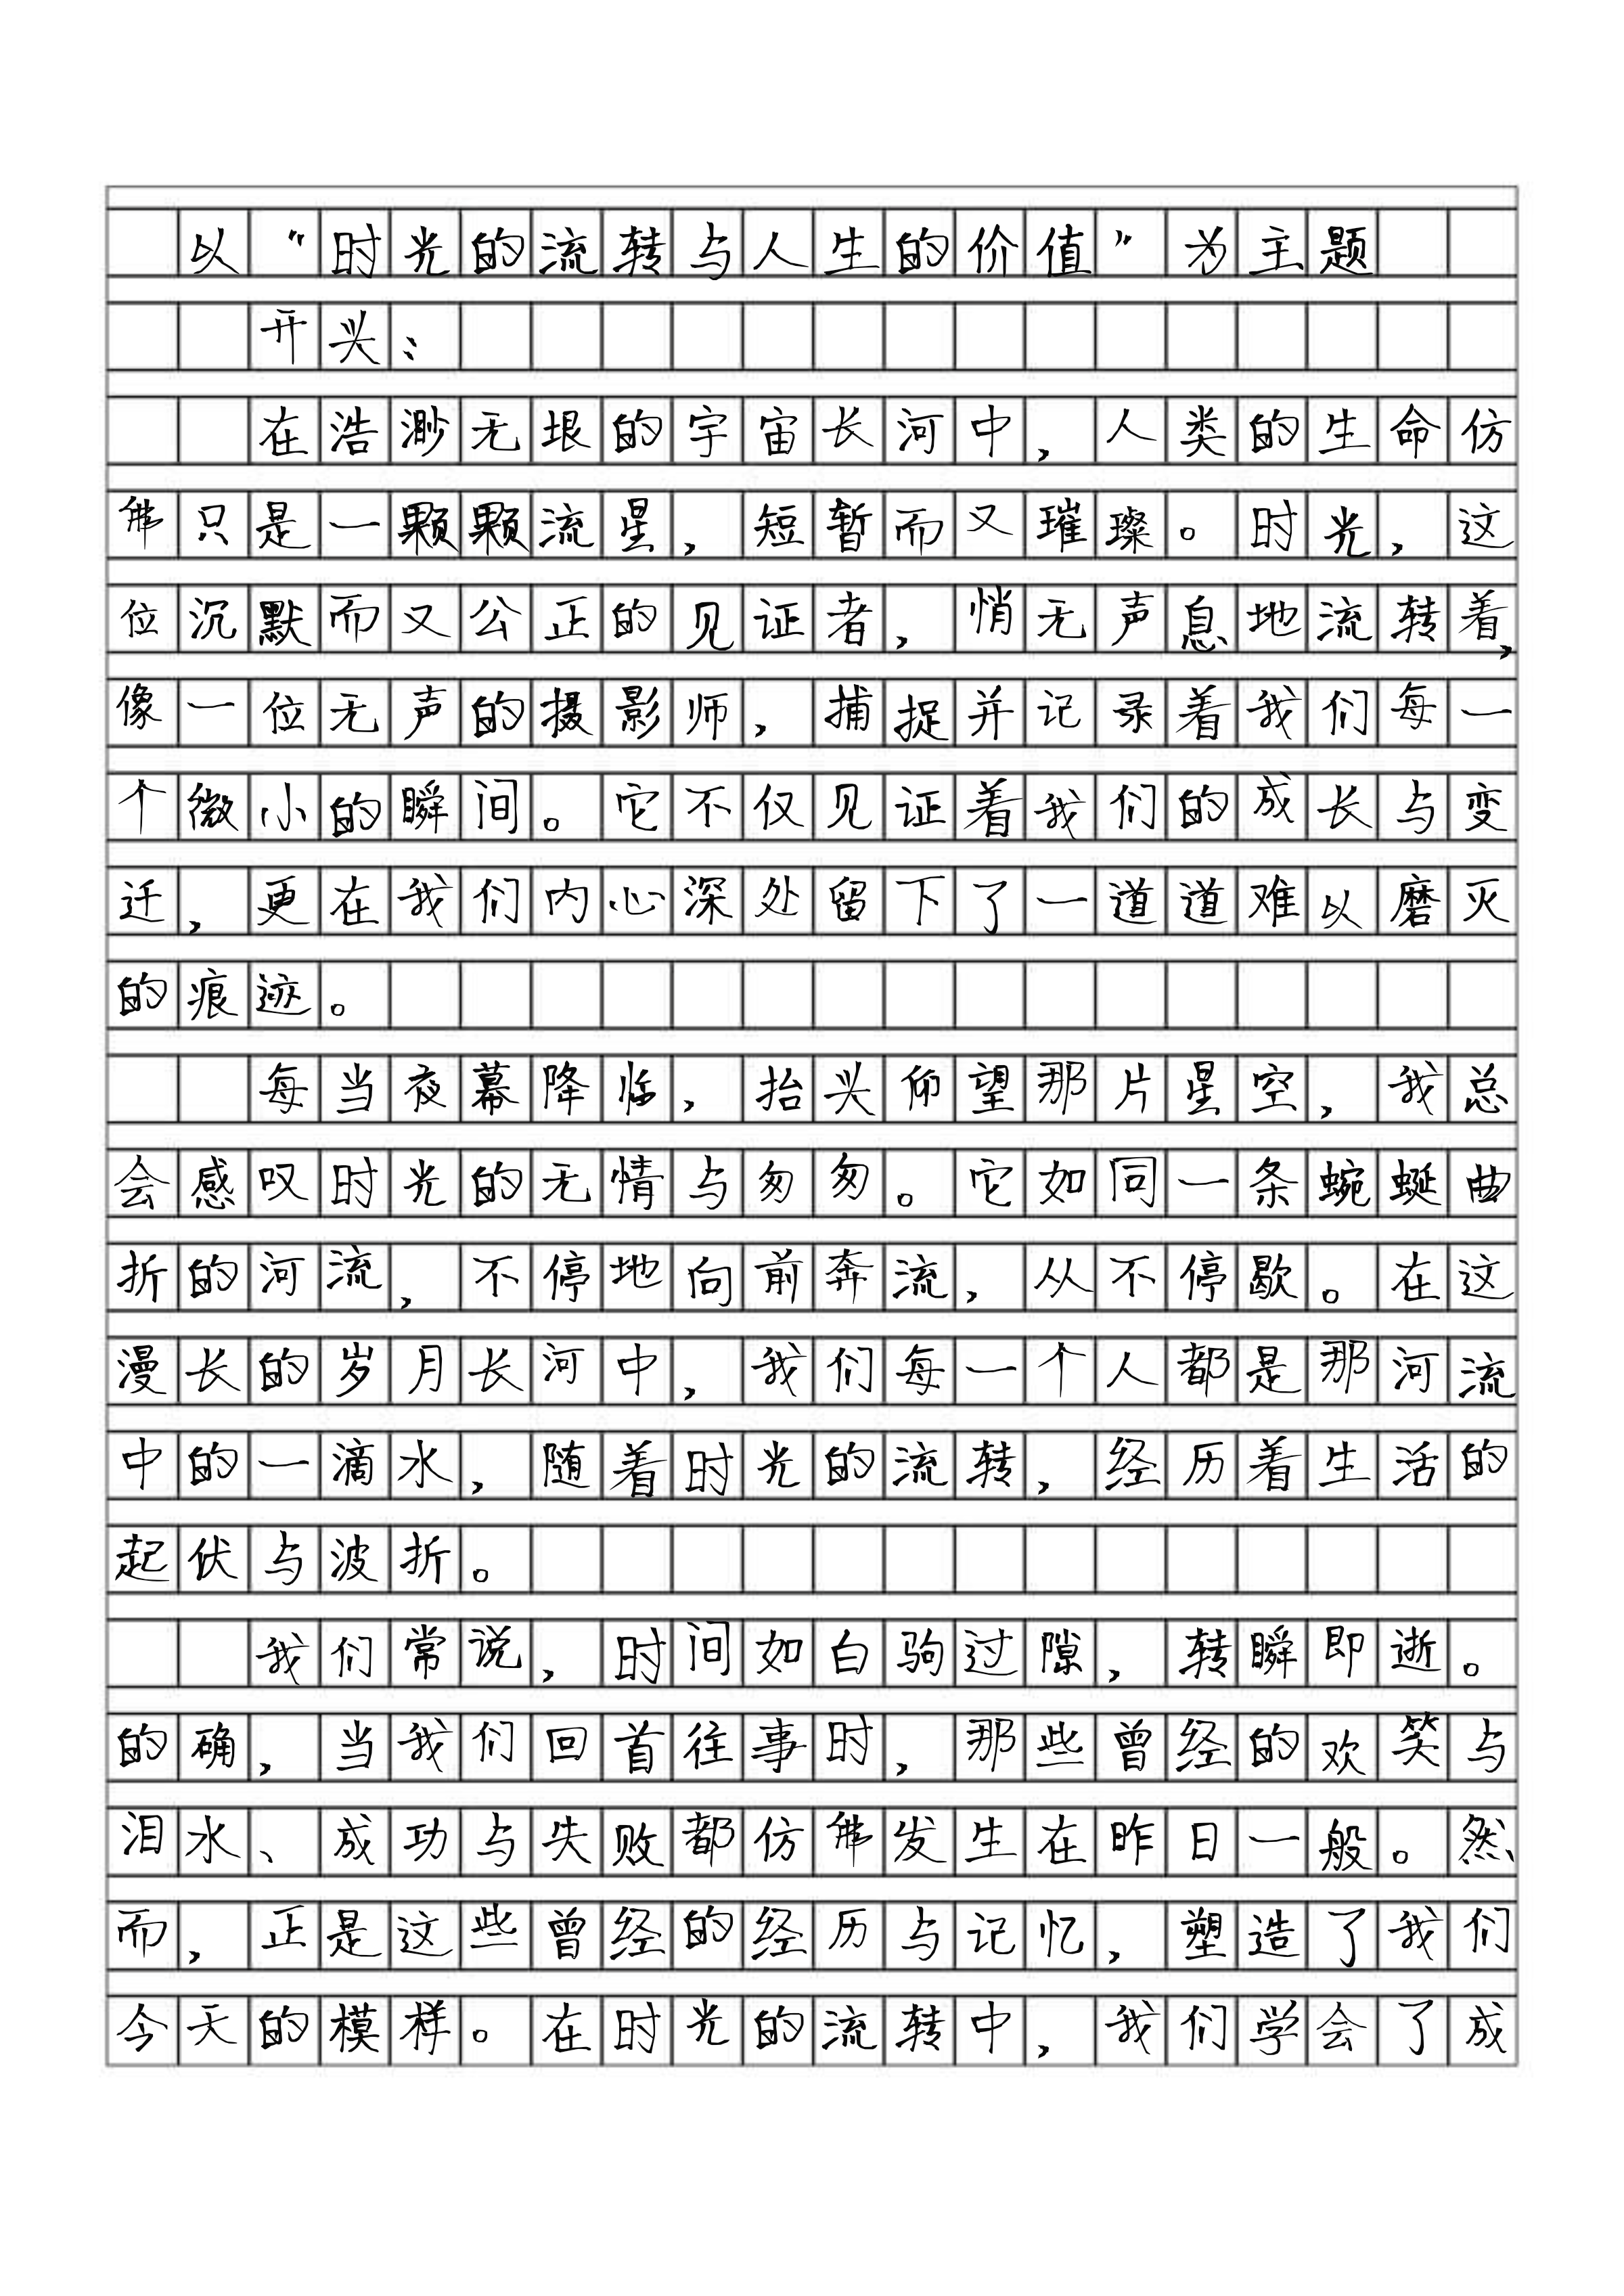 以“时光的流转与人生的价值”为主题
开头：
在浩渺无垠的宇宙长河中，人类的生命仿
佛只是一颗颗流星，短暂而又璀璨。时光，这
位沉默而又公正的见证者，悄无声息地流转着，
像一位无声的摄影师，捕捉并记录着我们每一
个微小的瞬间。它不仅见证着我们的成长与变
迁，更在我们内心深处留下了一道道难以磨灭
的痕迹。
每当夜幕降临，抬头仰望那片星空，我总
会感叹时光的无情与匆匆。它如同一条蜿蜒曲
折的河流，不停地向前奔流，从不停歇。在这
漫长的岁月长河中，我们每一个人都是那河流
中的一滴水，随着时光的流转，经历着生活的
起伏与波折。
我们常说，时间如白驹过隙，转瞬即逝。
的确，当我们回首往事时，那些曾经的欢笑与
泪水、成功与失败都仿佛发生在昨日一般。然
而，正是这些曾经的经历与记忆，塑造了我们
今天的模样。在时光的流转中，我们学会了成